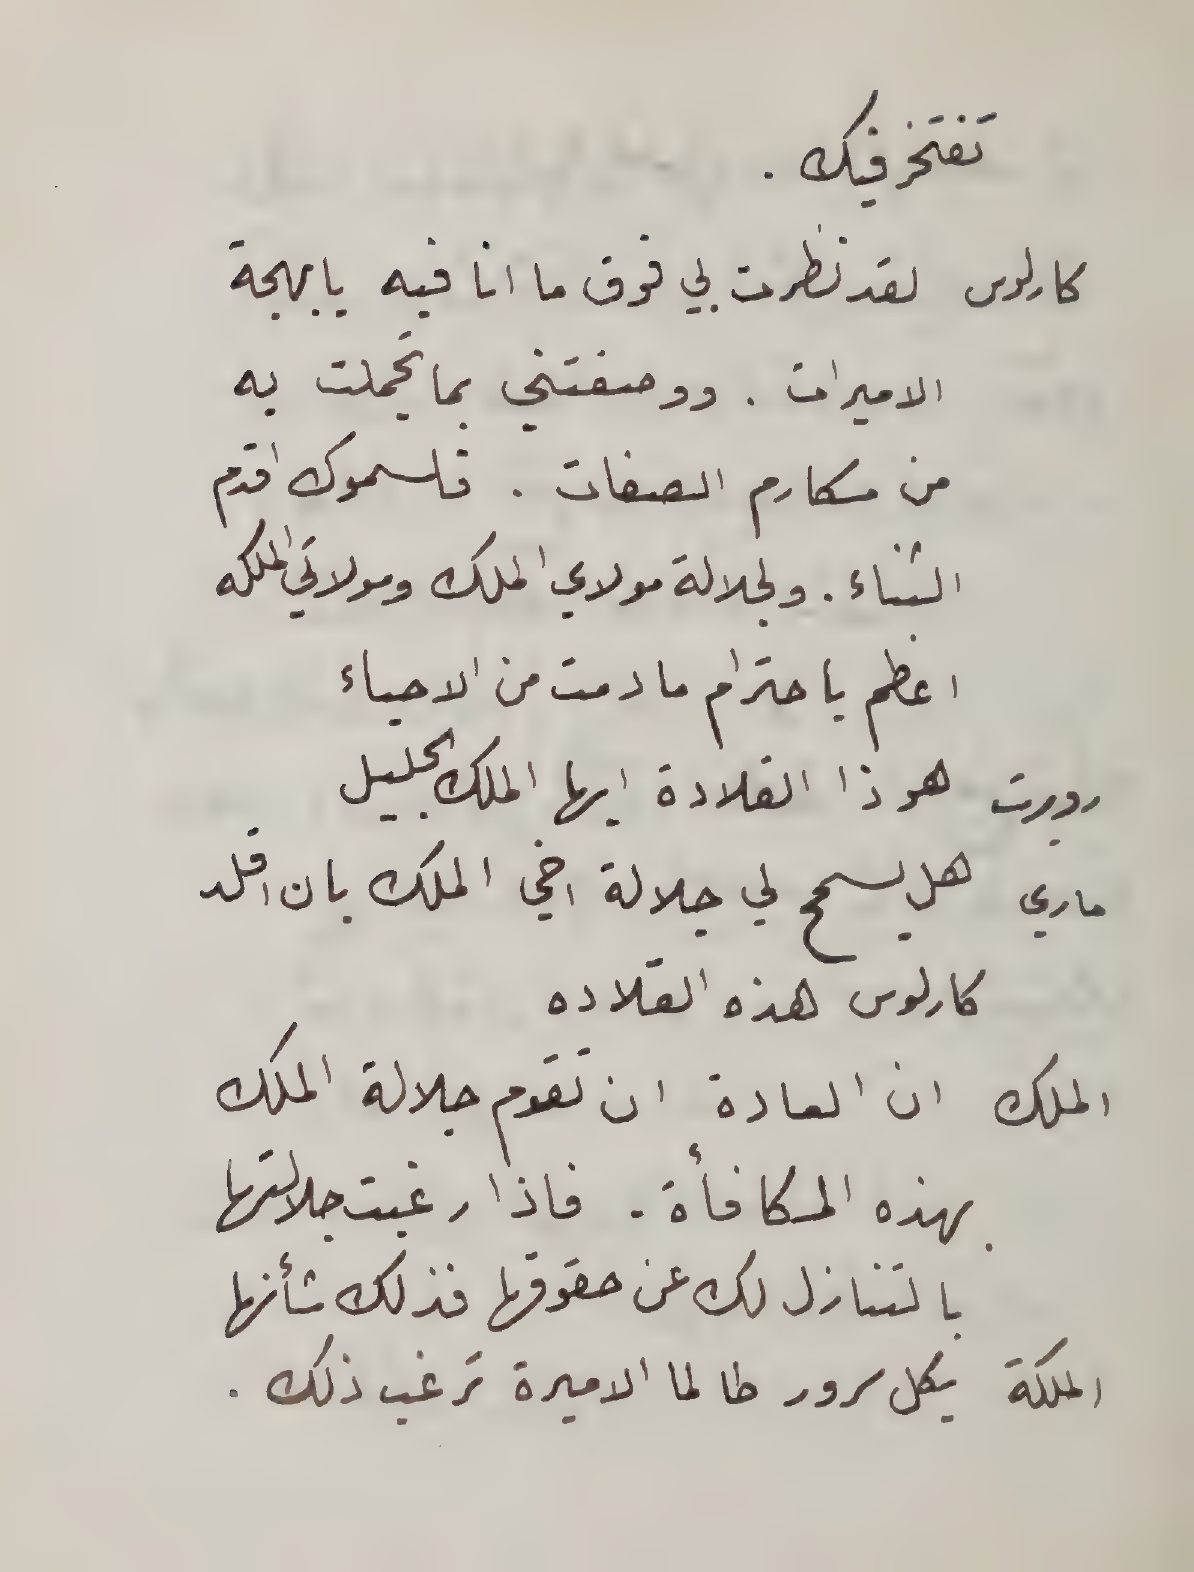 تفتخر فيك .
كارلوس لقد نظرت لي فوق ما انا فيه يا بهجة
الاميرات . ووصفتني بما تجملت به
من مكارم الصفات . فلسموك اقدم
الثناء . ولجلالة مولاي الملك ومولاتي الملكه
اعظم باحترام ما دمت من الاحياء
روبرت هوذا القلادة ايها الملك الجليل
ماري هل يسمح لي جلالة اخي الملك بان اقلد
كارلوس هذه القلاده
الملك ان العادة ان تقوم جلالة الملك
بهذه المكافأة . فاذا رغبت جلالتها
بالتنازل لك عن حقوقها فذلك شأنها
الملكة بكل سرور طالما الاميرة ترغب ذلك .